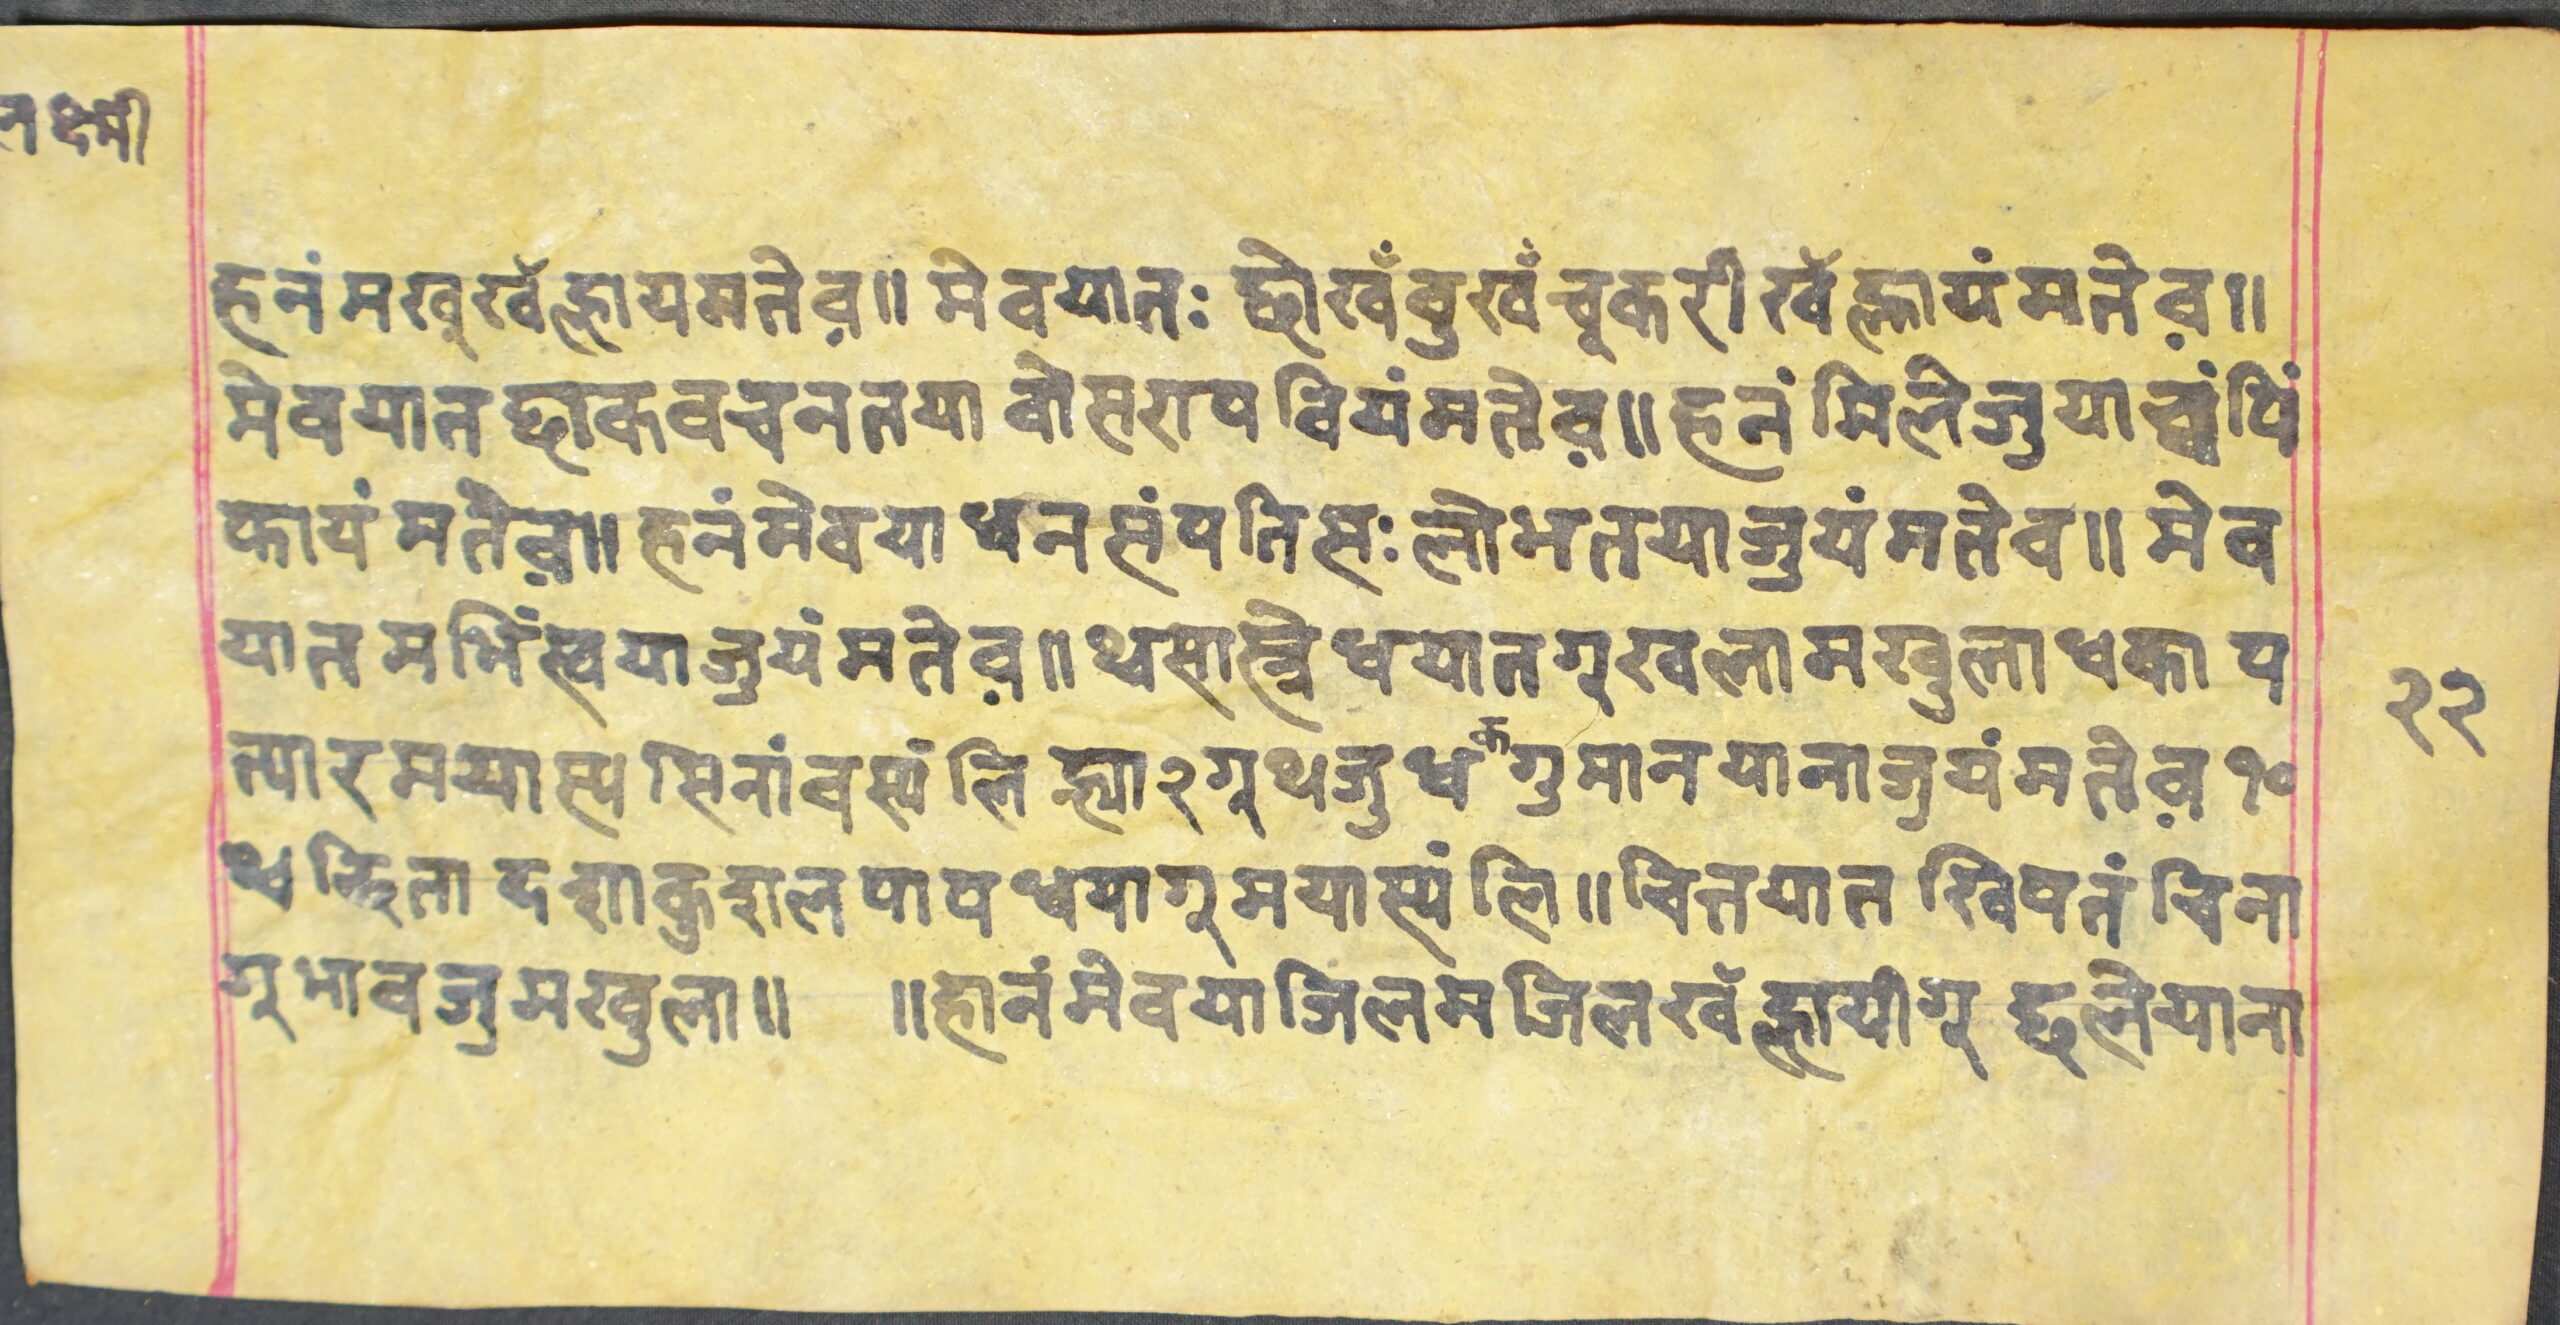 लक्ष्मी
हनं मखु खँ ल्हाय मतेव़॥ मेवयातः छोखँ वुखँ चूकरी खँ ह्लायं मतेव़॥
मेवयात छाकवचनतया वोसराप वियं मतेव़॥ हनं मिले जुया च्वंपिं
फायं मतेव़॥ हनं मेवया धनसंपतिसः लोभतया जुयं मतेव॥ मेव
यात मभिं स्वया जुयं मतेव़॥ थ्व सास्त्रे धयातगू खला मखुला धका प
त्यारमयास्य सिनांवस्यं लि ह्या२गू थजु धकं गुमानयाना जुयं मतेव़ १०
थ्व झिता दशाकुशल पाप धयागू मयास्यं लि॥ चित्तयात खिपतं चिना
गू भाव जु मखुला॥ ॥हानं मेवया जिल मजिल खँ ल्हायीगू छलेयाना
२२